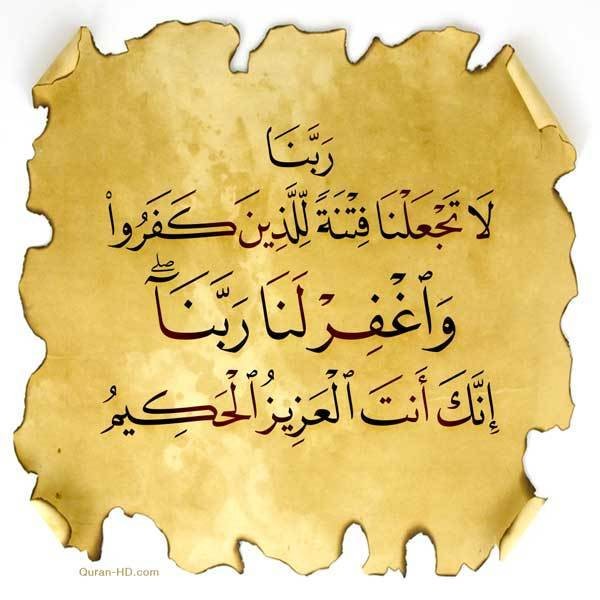 رَبَّنَا
لَا تَجْعَلْنَا فِتْنَةً لِّلَّذِينَ كَفَرُوا۟
وَٱغْفِرْ لَنَا رَبَّنَآ ۖ
إِنَّكَ أَنتَ ٱلْعَزِيزُ ٱلْحَكِيمُ
Quran-HD.com